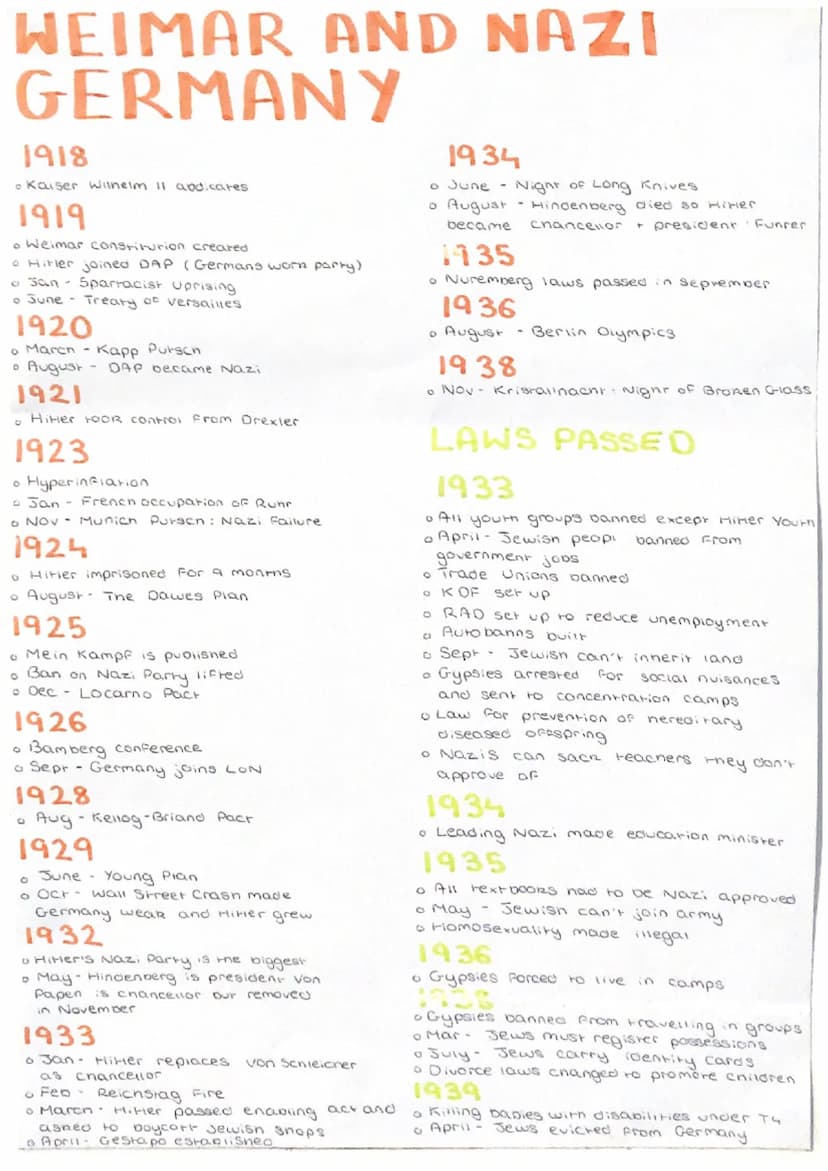 WEIMAR AND NAZI
GERMANY
1918
Kaiser Wilhelm II abdicates
1919
Weimar constitution created
Hitler joined DAP (Germans work party)
Jan - Spartacist Uprising
June - Treaty of Versailles
1920
March - Kapp Putsch
August - DAP became Nazi
1921
Hitler took control from Drexler
1923
Hyperinflation
Jan - French occupation of Ruhr
Nov - Munich Putsch : Nazi Failure
1924
Hitler imprisoned for 9 months
August - The Dawes Plan
1925
Mein Kampf is published
Ban on Nazi Party lifted
Dec - Locarno Pact
1926
Bamberg conference
Sept - Germany joins LoN
1928
Aug - Kellog-Briand Pact
1929
June - Young Plan
Oct - Wall Street Crash made
Germany weak and Hitler grew
1932
Hitler's Nazi Party is the biggest
May - Hindenberg is president von
Papen is chancellor but removed
in November
1933
Jan - Hitler replaces von Schleicher
as chancellor
Feb - Reichstag Fire
March - Hitler passed enabling act and
asked to boycott Jewish shops
April - Gestapo established
1934
June - Night of Long Knives
August - Hindenberg died so Hitler
became chancellor + president : Fuhrer
1935
Nuremberg laws passed in September
1936
August - Berlin Olympics
1938
Nov - Kristallnacht : Night of Broken Glass
LAWS PASSED
1933
All youth groups banned except Hitler Youth
April - Jewish peopl banned from
government jobs
Trade Unions banned
KDF set up
RAD set up to reduce unemployment
Autobahns built
Sept - Jewish can't inherit land
Gypsies arrested for social nuisances
and sent to concentration camps
Law for prevention of hereditary
diseased offspring
Nazis can sack teachers they don't
approve of
1934
Leading Nazi made education minister
1935
All textbooks had to be Nazi approved
May - Jewish can't join army
Homosexuality made illegal
1936
Gypsies forced to live in camps
1938
Gypsies banned from travelling in groups
Mar - Jews must register possessions
July - Jews carry identity cards
Divorce laws changed to promote children
1939
Killing babies with disabilities under T4
April - Jews evicted from Germany